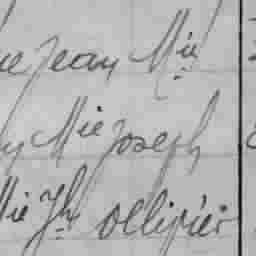 Jean Mie
Mie Joseph
Mie Jh Ollivier